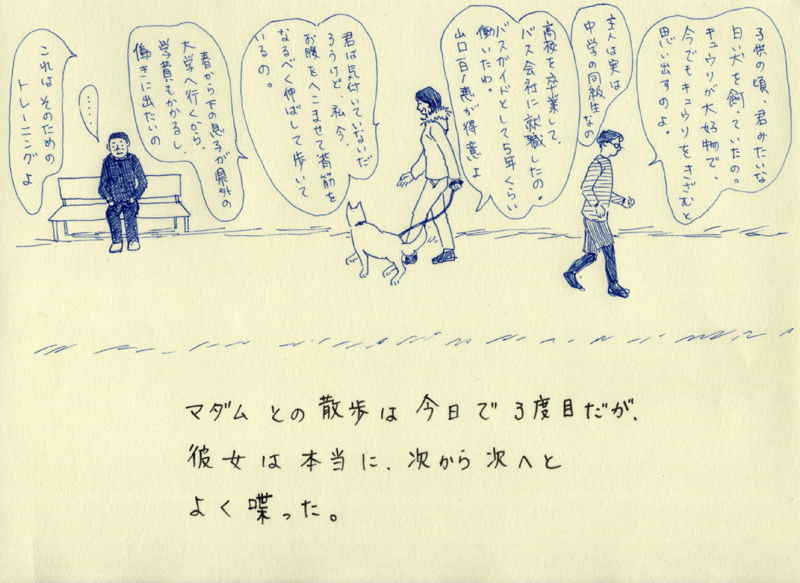 子供の頃、君みたいな
白い犬を飼っていたの。
キュウリが大好物で、
今でもキュウリをきざむと
思い出すのよ。
主人は実は
中学の同級生なの
高校を卒業して、
バス会社に就職したの。
バスガイドとして5年くらい
働いたわ。
山口百恵が得意よ
君は気付いていないだ
ろうけど 私、今、
お腹をへこませて背筋を
なるべく伸ばして歩いて
いるの。
春から下の息子が県外の
大学へ行くから、
学費もかかるし、
働きに出たいの
・・・・
これはそのための
トレーニングよ
マダムとの散歩は今日で3度目だが、
彼女は本当に、次から次へと
よく喋った。